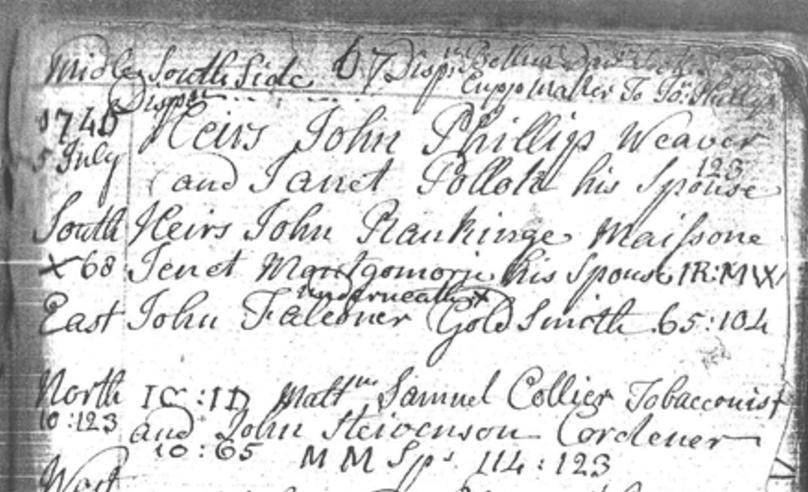 Midle South Side 67 Dispr
Cuppmaker To Jo: Phillips
Dispon
1745 Heirs John Phillip Weaver
5 July 123
and Janet Pollok his Spouse
South Heirs John Rankinge Maissone
x 68 Jenet Montgomorie his Spouse IR:MW
underneath x
East John Falconer Gold Smith 65:104
North IC:ID Samuel Collier Tobacconist
10:123 and John Steivenson Cordener
10:65 MM Sps 114:123
West